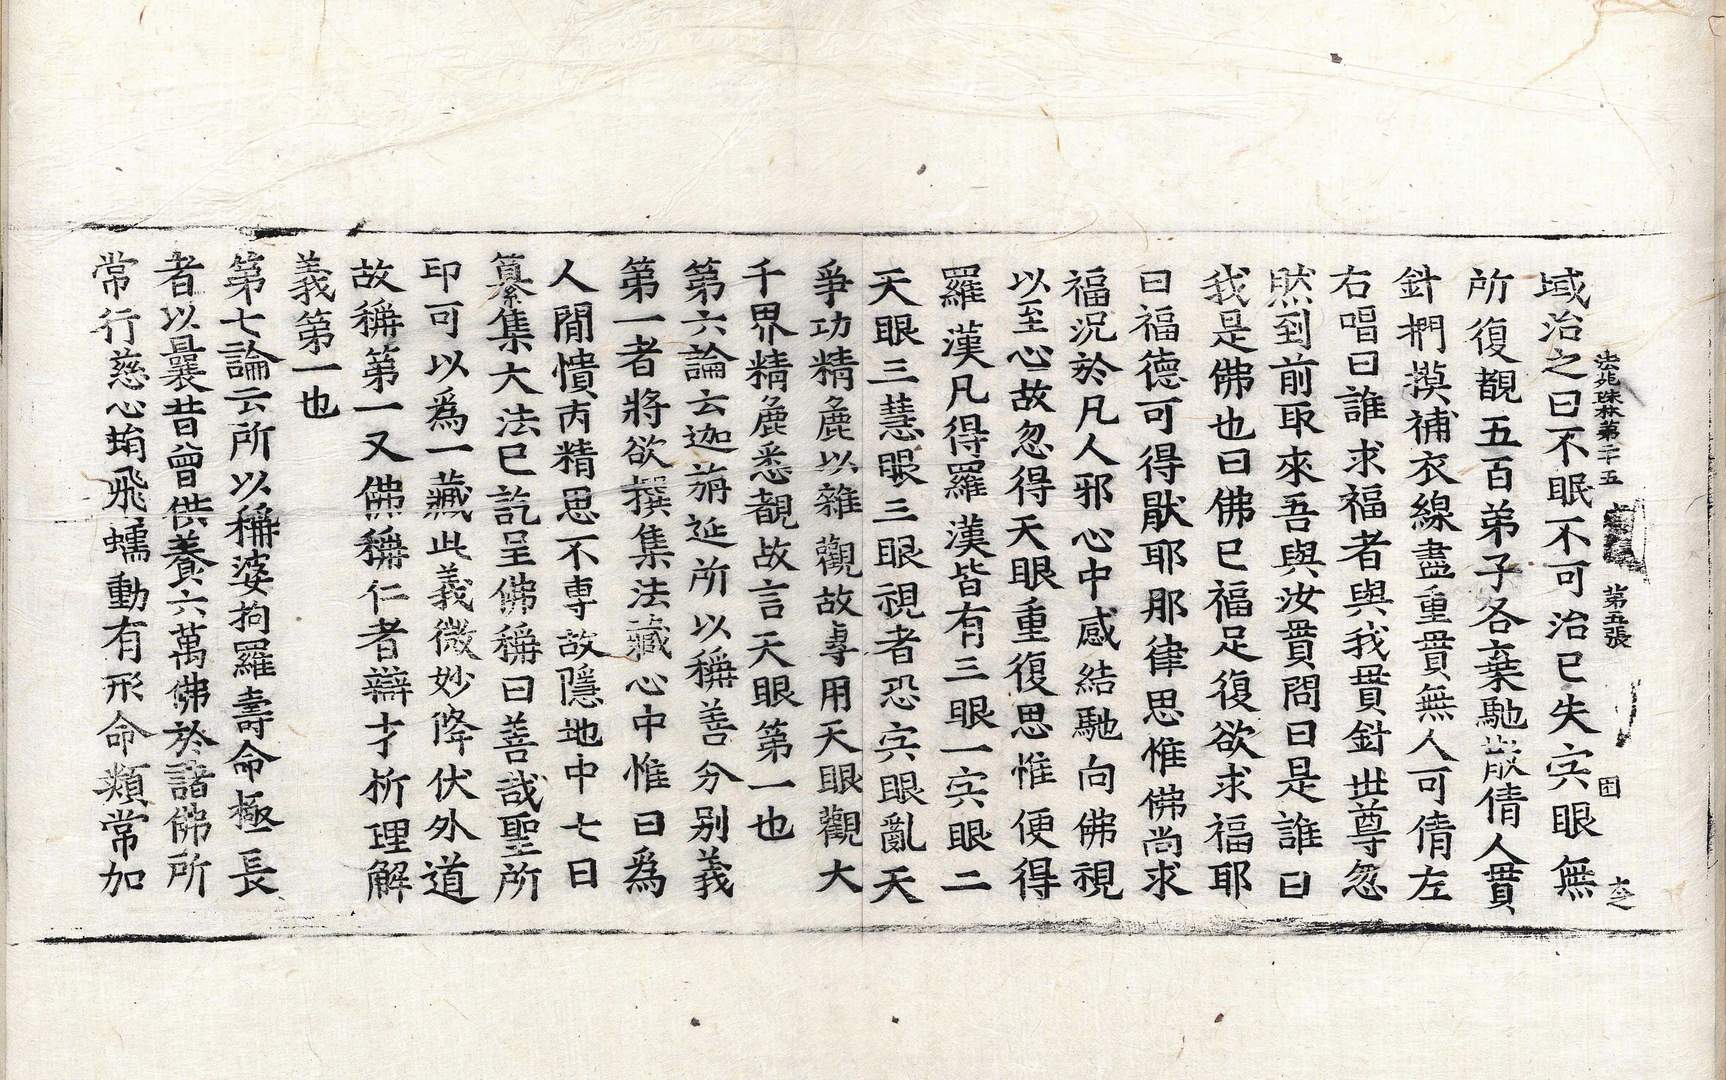 法苑珠林第二十五 第五張 困
域治之曰不眠不可治已失宍眼無
所復覩五百弟子各棄馳散倩人貫
針捫摸補衣線盡重貫無人可倩左
右唱曰誰求福者與我貫針世尊忽
然到前取來吾與汝貫問曰是誰曰
我是佛也曰佛已福足復欲求福耶
曰福德可得猒耶那律思惟佛尚求
福況於凡人邪心中感結馳向佛視
以至心故忽得天眼重復思惟便得
羅漢凡得羅漢皆有三眼一宍眼二
天眼三慧眼三眼視者恐宍眼亂天
爭功精麁以雜觀故專用天眼觀大
千界精麁悉覩故言天眼第一也
第六論云迦旃延所以稱善分別義
第一者將欲撰集法藏心中惟曰為
人閒憒丙精思不專故隱地中七日
纂集大法已訖呈佛稱曰善哉聖所
印可以為一藏此義微妙降伏外道
故稱第一又佛稱仁者辯才析理解
義第一也
第七論云所以稱婆拘羅壽命極長
者以曩昔曾供養六萬佛於諸佛所
常行慈心蜎飛蠕動有形命類常加